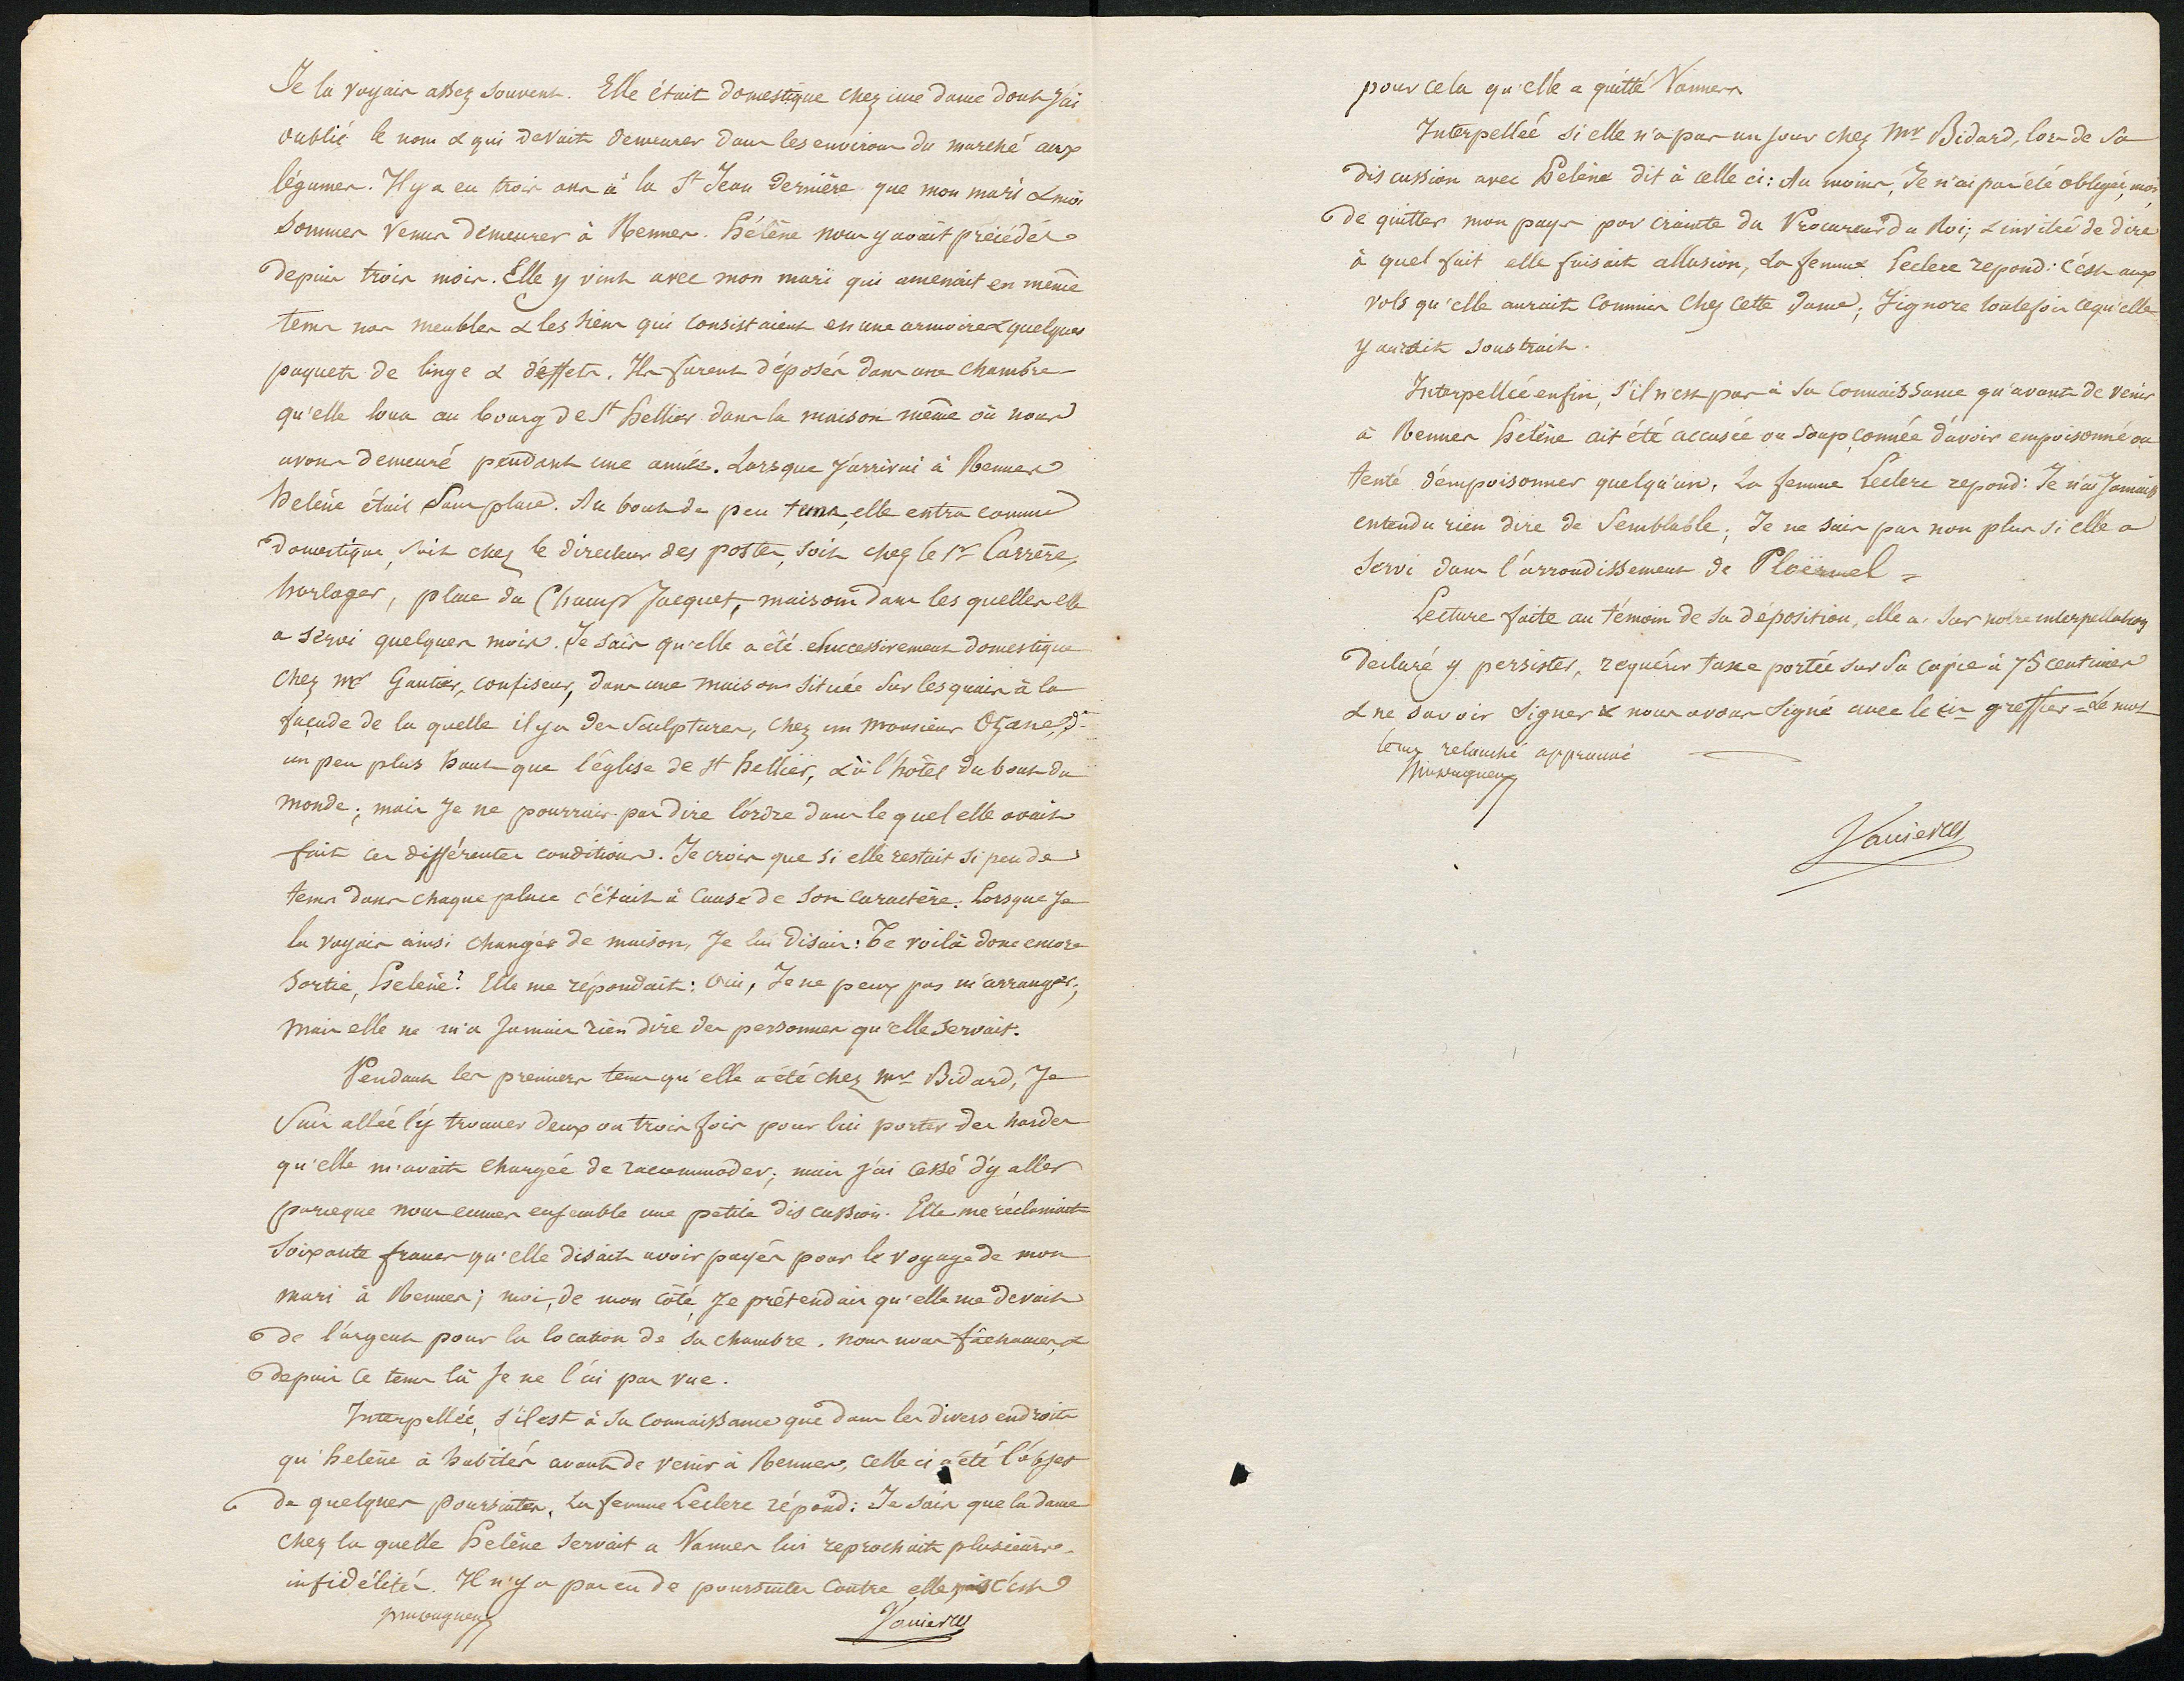 Je la voyais assez souvent. Elle était domestique chez une dame dont j'ai
oublié le nom & qui devait demeurer dans les environs du marché aux
légumes. Il y a eu trois ans à la St Jean dernière que mon mari & moi
sommes venus demeurer à Rennes. Hélène nous y avait précédés
depuis trois mois. Elle y vint avec mon mari qui amenait en même
tems nos meubles & les siens qui consistaient en une armoire & quelques
paquets de linge & d'effets. Ils furent déposés dans une chambre
qu'elle loua au bourg de St hellier dans la maison même où nous
avons demeuré pendant une année. Lorsque j'arrivai à Rennes
helène était sans place. Au bout de peu tems, elle entra comme
domestique, soit chez le directeur des postes, soit chez le Sr Carrère,
horloger, place du Champ Jacquet, maisons dans les quelles elle
a servi quelques mois. Je sais qu'elle a été successivement domestique
chez Mr Gautier, confiseur, dans une maison située sur les quais à la
façade de la quelle il y a des sculptures, chez un monsieur Ozanne,
un peu plus haut que l'église de St hellier, & à l'hôtel du bout du
monde; mais je ne pourrais pas dire l'ordre dans le quel elle avait
fait ces différentes conditions. Je crois que si elle restait si peu de
tems dans chaque place c'était à cause de son caractère. Lorsque je
la voyais ainsi changer de maison, je lui disais: Te voilà donc encore
sortie, helène? Elle me répondait: Oui, Je ne peux pas m'arranger;
mais elle ne m'a jamais rien dire des personnes qu'elle servait.
Pendant les premiers tems qu'elle a été chez Mr Bidard, Je
suis allée l'y trouver deux ou trois fois pour lui porter des hardes
qu'elle m'avait chargée de racommoder; mais j'ai cessé d'y aller
parceque nous eumes ensemble une petite discussion. Elle me réclamait
soixante francs qu'elle disait avoir payés pour le voyage de mon
mari à Rennes; moi, de mon côté, je prétendais qu'elle me devait
de l'argent pour la location de sa chambre. nous nous fâchames, &
depuis ce tems là je ne l'ai pas vue.
Interpellée, s'il est à sa connaissance que dans les divers endroits
qu'helène à habités avant de venir à Rennes, celle ci a été l'objet
de quelques poursuites, La femme Leclerc répond: Je sais que la dame
chez la quelle helène servait a Vannes lui reprochait plusieurs
infidélités. Il n'y a pas eu de poursuites contre elle, mais c'est
Vanier
pour cela qu'elle a quitté Vannes
Interpellée si elle n'a pas un jour chez Mr Bidard, lors de sa
discussion avec helène dit à celle ci: Au moins, Je n'ai pas été obligée, moi,
de quitter mon pays par crainte du Procureur du Roi; & invitée de dire
à quel fait elle faisait allusion, La femme Leclerc repond: C'est aux
vols qu'elle aurait commis chez cette dame; J'ignore toutefois ce qu'elle
y aurait soustrait.
Interpellée enfin, s'il n'est pas à sa connaissance qu'avant de venir
à Rennes helène ait été accusée ou soupçonnée d'avoir empoisonné ou
tenté d'empoisonner quelqu'un, La femme Leclerc repond: Je n'ai jamais
entendu rien dire de semblable; Je ne sais pas non plus si elle a
servi dans l'arrondissement de Ploërmel =
Lecture faite au témoin de sa déposition, elle a sur notre interpellation
declaré y persister, requérir taxe portée sur sa copie à 75 centimes
& ne savoir signer & nous avons signé avec le cis greffier = Le mot
tems retouché approuvé
Vanier